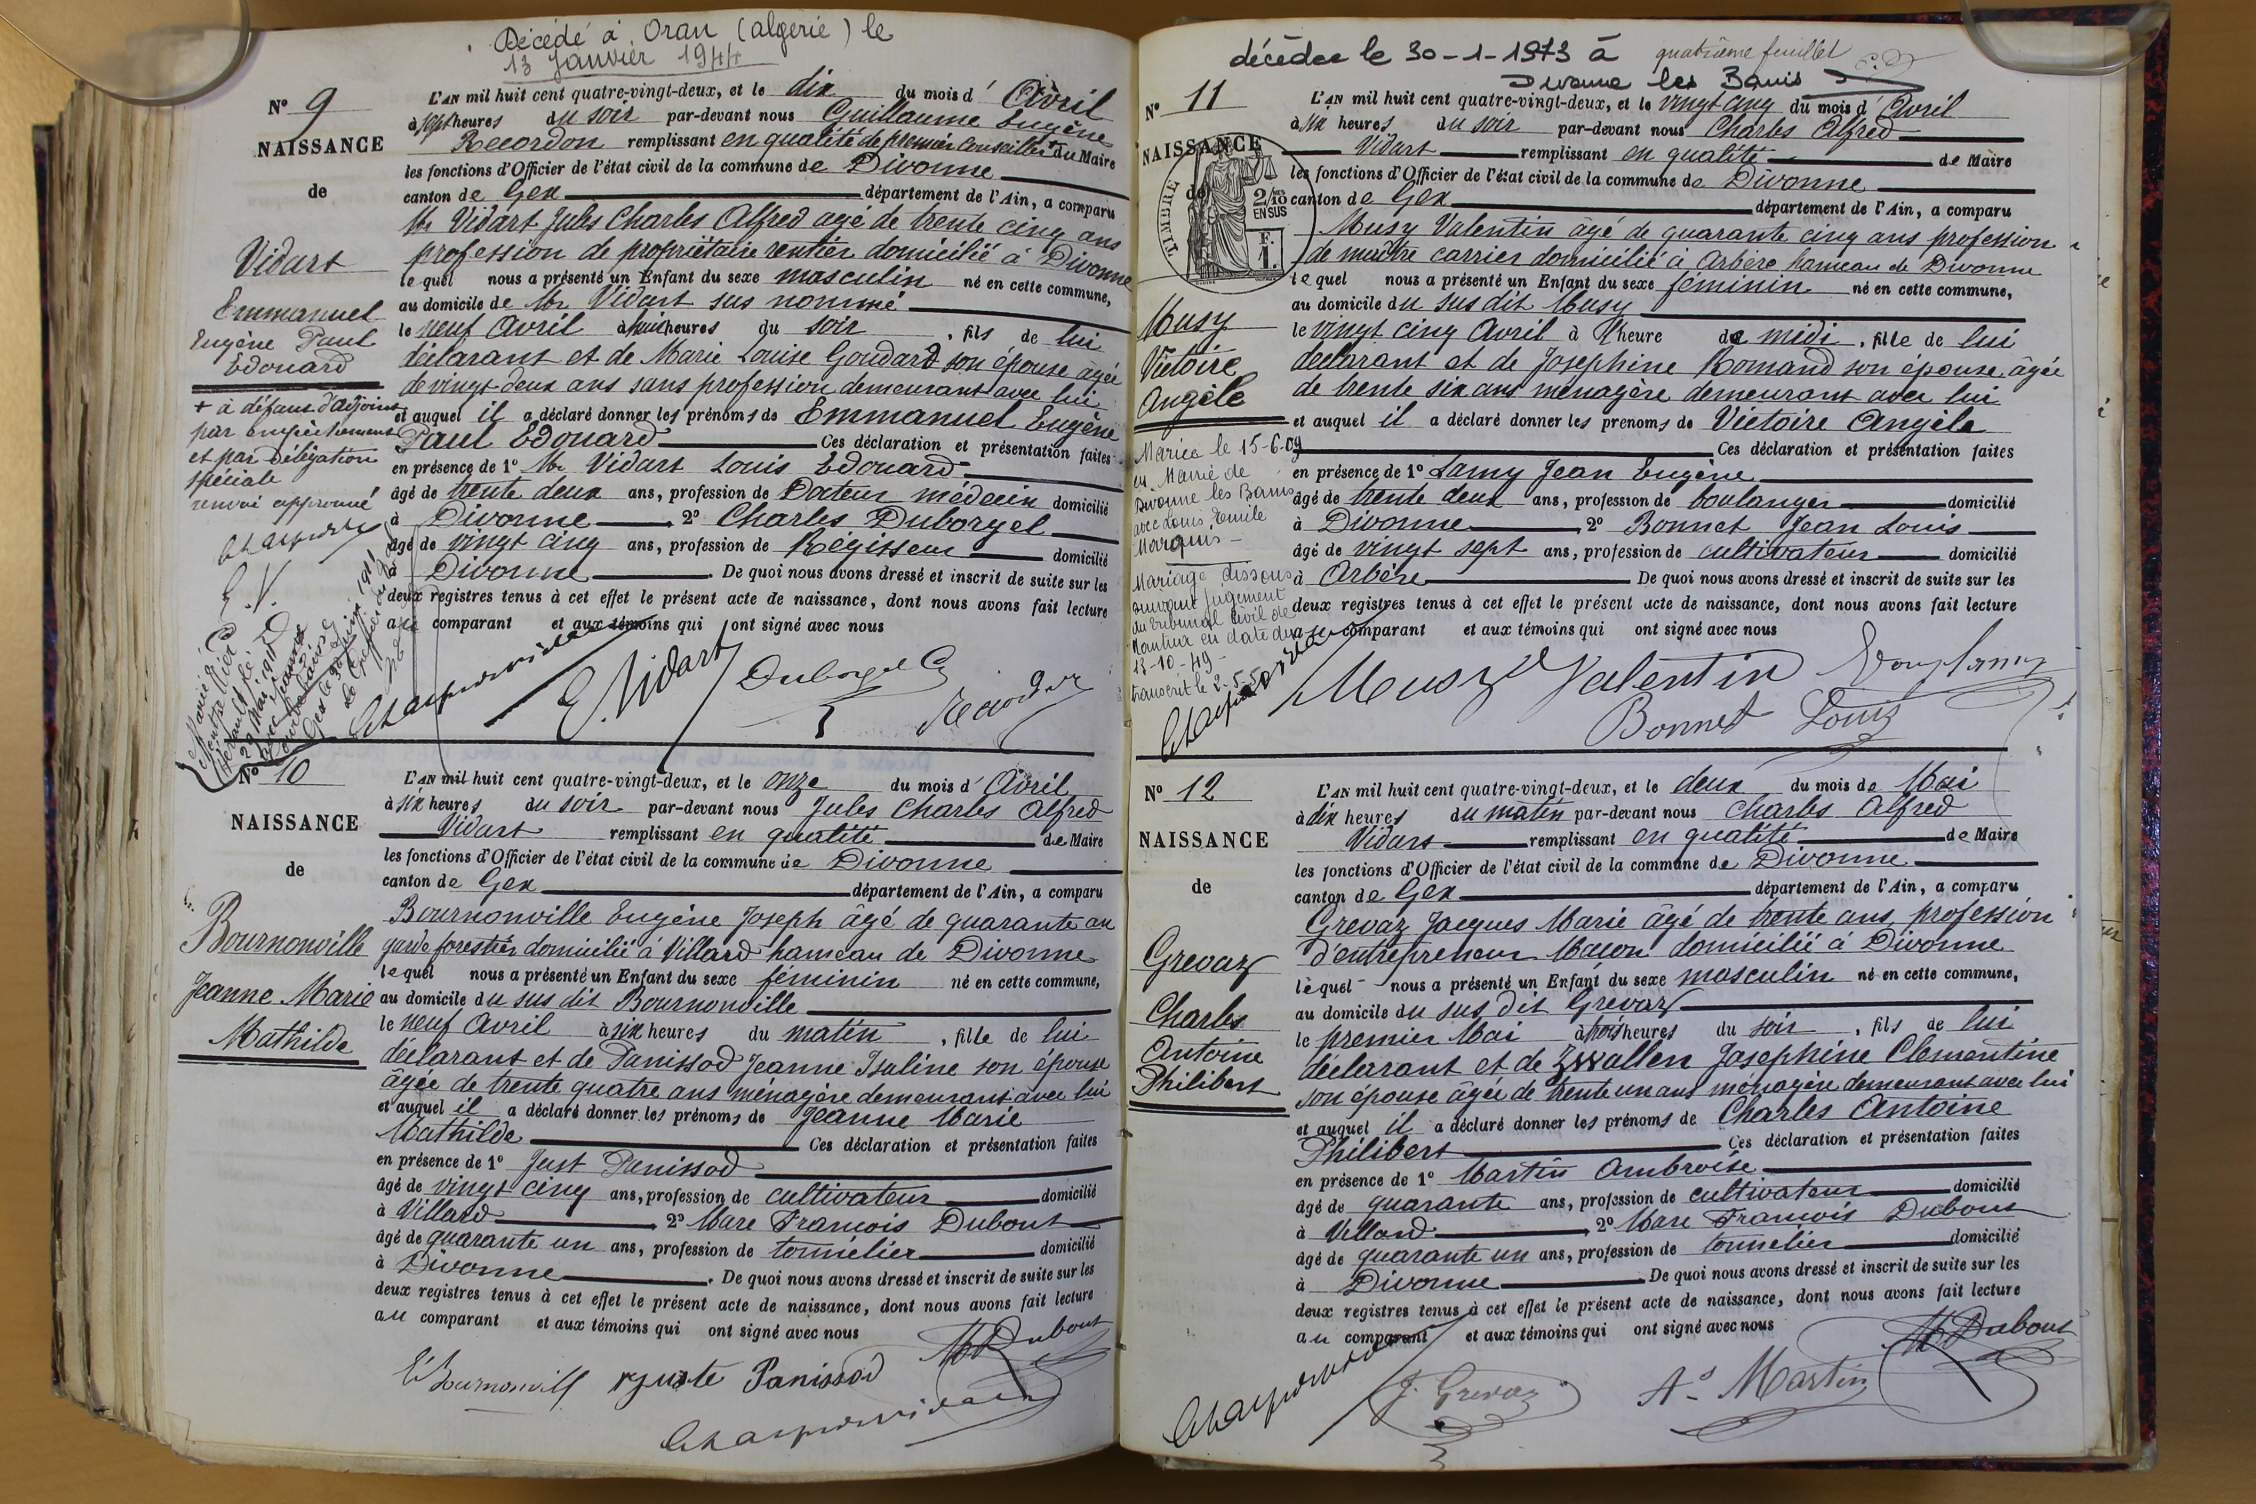 Décédé à Oran (algérie) le
13 Janvier 1944
N° 9
NAISSANCE
de
Vidart
Emmanuel
Eugène Paul
Edouard
+ à défaut d'adjoint
par empêchement
et par délégation
spéciale
renvoi approuvé
E.V.
L'AN mil huit cent quatre-vingt-deux, et le dix du mois d' Avril
à sept heures du soir par-devant nous Guillaume Eugène
Recordon remplissant en qualité de premier conseiller + du Maire
les fonctions d'Officier de l'état civil de la commune de Divonne
canton de Gex département de l'Ain, a comparu
Mr Vidart Jules Charles Alfred agé de trente cinq ans
profession de propriétaire rentier domicilié à Divonne
lequel nous a présenté un Enfant du sexe masculin né en cette commune,
au domicile de Mr Vidart sus nommé
le neuf Avril à huit heures du soir, fils de lui
déclarant et de Marie Louise Goudard son épouse agée
de vingt-deux ans sans profession demeurant avec lui
et auquel il a déclaré donner les prénoms de Emmanuel Eugène
Paul Edouard Ces déclaration et présentation faites
en présence de 1° Mr Vidart Louis Edouard
âgé de trente deux ans, profession de Docteur médecin domicilié
à Divonne 2° Charles Duborgel
âgé de vingt cinq ans, profession de Régisseur domicilié
à Divonne. De quoi nous avons dressé et inscrit de suite sur les
deux registres tenus à cet effet le présent acte de naissance, dont nous avons fait lecture
au comparant et aux témoins qui ont signé avec nous
E. Vidart Duborgel C Recordon
N° 10
NAISSANCE
de
Bournonville
Jeanne Marie
Mathilde
L'AN mil huit cent quatre-vingt-deux, et le onze du mois d' Avril
à six heures du soir par-devant nous Jules Charles Alfred
Vidart remplissant en qualité de Maire
les fonctions d'Officier de l'état civil de la commune de Divonne
canton de Gex département de l'Ain, a comparu
Bournonville Eugène Joseph âgé de quarante an
garde forestier domicilié à Villard hameau de Divonne
lequel nous a présenté un Enfant du sexe féminin né en cette commune,
au domicile du sus dit Bournonville
le neuf Avril à six heures du matin, fille de lui
déclarant et de Panissod Jeanne Isaline son épouse
âgée de trente quatre ans ménagère demeurant avec lui
et auquel il a déclaré donner les prénoms de Jeanne Marie
Mathilde Ces déclaration et présentation faites
en présence de 1° Just Panissod
âgé de vingt cinq ans, profession de cultivateur domicilié
à Villard 2° Marc François Dubout
âgé de quarante un ans, profession de tonnelier domicilié
à Divonne. De quoi nous avons dressé et inscrit de suite sur les
deux registres tenus à cet effet le présent acte de naissance, dont nous avons fait lecture
au comparant et aux témoins qui ont signé avec nous
M Dubout
E Bournonvill juste Panissod
décédée le 30-1-1973 à
Divonne les Bains
quatrième feuillet
N° 11
NAISSANCE
de
TIMBRE
2/10
EN SUS
F.
1.
Musy
Victoire
Angèle
Mariée le 15-6-09
en Mairie de
Divonne les Bains
avec Louis, Emile
Marquis
Mariage dissous
suivant jugement
du tribunal civil de
Nantua en date du
13-10-49
transcrit le 2-5-50
L'AN mil huit cent quatre-vingt-deux, et le vingt cinq du mois d' Avril
à six heures du soir par-devant nous Charles Alfred
Vidart remplissant en qualité de Maire
les fonctions d'Officier de l'état civil de la commune de Divonne
canton de Gex département de l'Ain, a comparu
Musy Valentin âgé de quarante cinq ans profession
de maître carrier domicilié à Arbère hameau de Divonne
lequel nous a présenté un Enfant du sexe féminin né en cette commune,
au domicile du sus dit Musy
le vingt cinq Avril à heure de midi, fille de lui
déclarant et de Josephine Romand son épouse âgée
de trente six ans ménagère demeurant avec lui
et auquel il a déclaré donner les prenoms de Victoire Angèle
Ces déclaration et présentation faites
en présence de 1° Lamy Jean Eugène
âgé de trente deux ans, profession de boulanger domicilié
à Divonne 2° Bonnet Jean Louis
âgé de vingt sept ans, profession de cultivateur domicilié
à Arbère De quoi nous avons dressé et inscrit de suite sur les
deux registres tenus à cet effet le présent acte de naissance, dont nous avons fait lecture
au comparant et aux témoins qui ont signé avec nous
Musy Valentin
Bonnet Louis
N° 12
NAISSANCE
de
Grevaz
Charles
Antoine
Philibert
L'AN mil huit cent quatre-vingt-deux, et le deux du mois de Mai
à dix heures du matin par-devant nous Charles Alfred
Vidart remplissant en qualité de Maire
les fonctions d'Officier de l'état civil de la commune de Divonne
canton de Gex département de l'Ain, a comparu
Grevaz Jacques Marie âgé de trente ans profession
d'entrepreneur Maçon domicilié à Divonne
lequel nous a présenté un Enfant du sexe masculin né en cette commune,
au domicile du sus dit Grevaz
le premier Mai à trois heures du soir, fils de lui
déclarant et de Zwallen Josephine Clementine
son épouse âgée de trente un ans ménagère demeurant avec lui
et auquel il a déclaré donner les prénoms de Charles Antoine
Philibert Ces déclaration et présentation faites
en présence de 1° Martin Ambroise
âgé de quarante ans, profession de cultivateur domicilié
à Villard 2° Marc François Dubout
âgé de quarante un ans, profession de tonnelier domicilié
à Divonne De quoi nous avons dressé et inscrit de suite sur les
deux registres tenus à cet effet le présent acte de naissance, dont nous avons fait lecture
au comparant et aux témoins qui ont signé avec nous
M Dubout
J. Grevaz As Martin